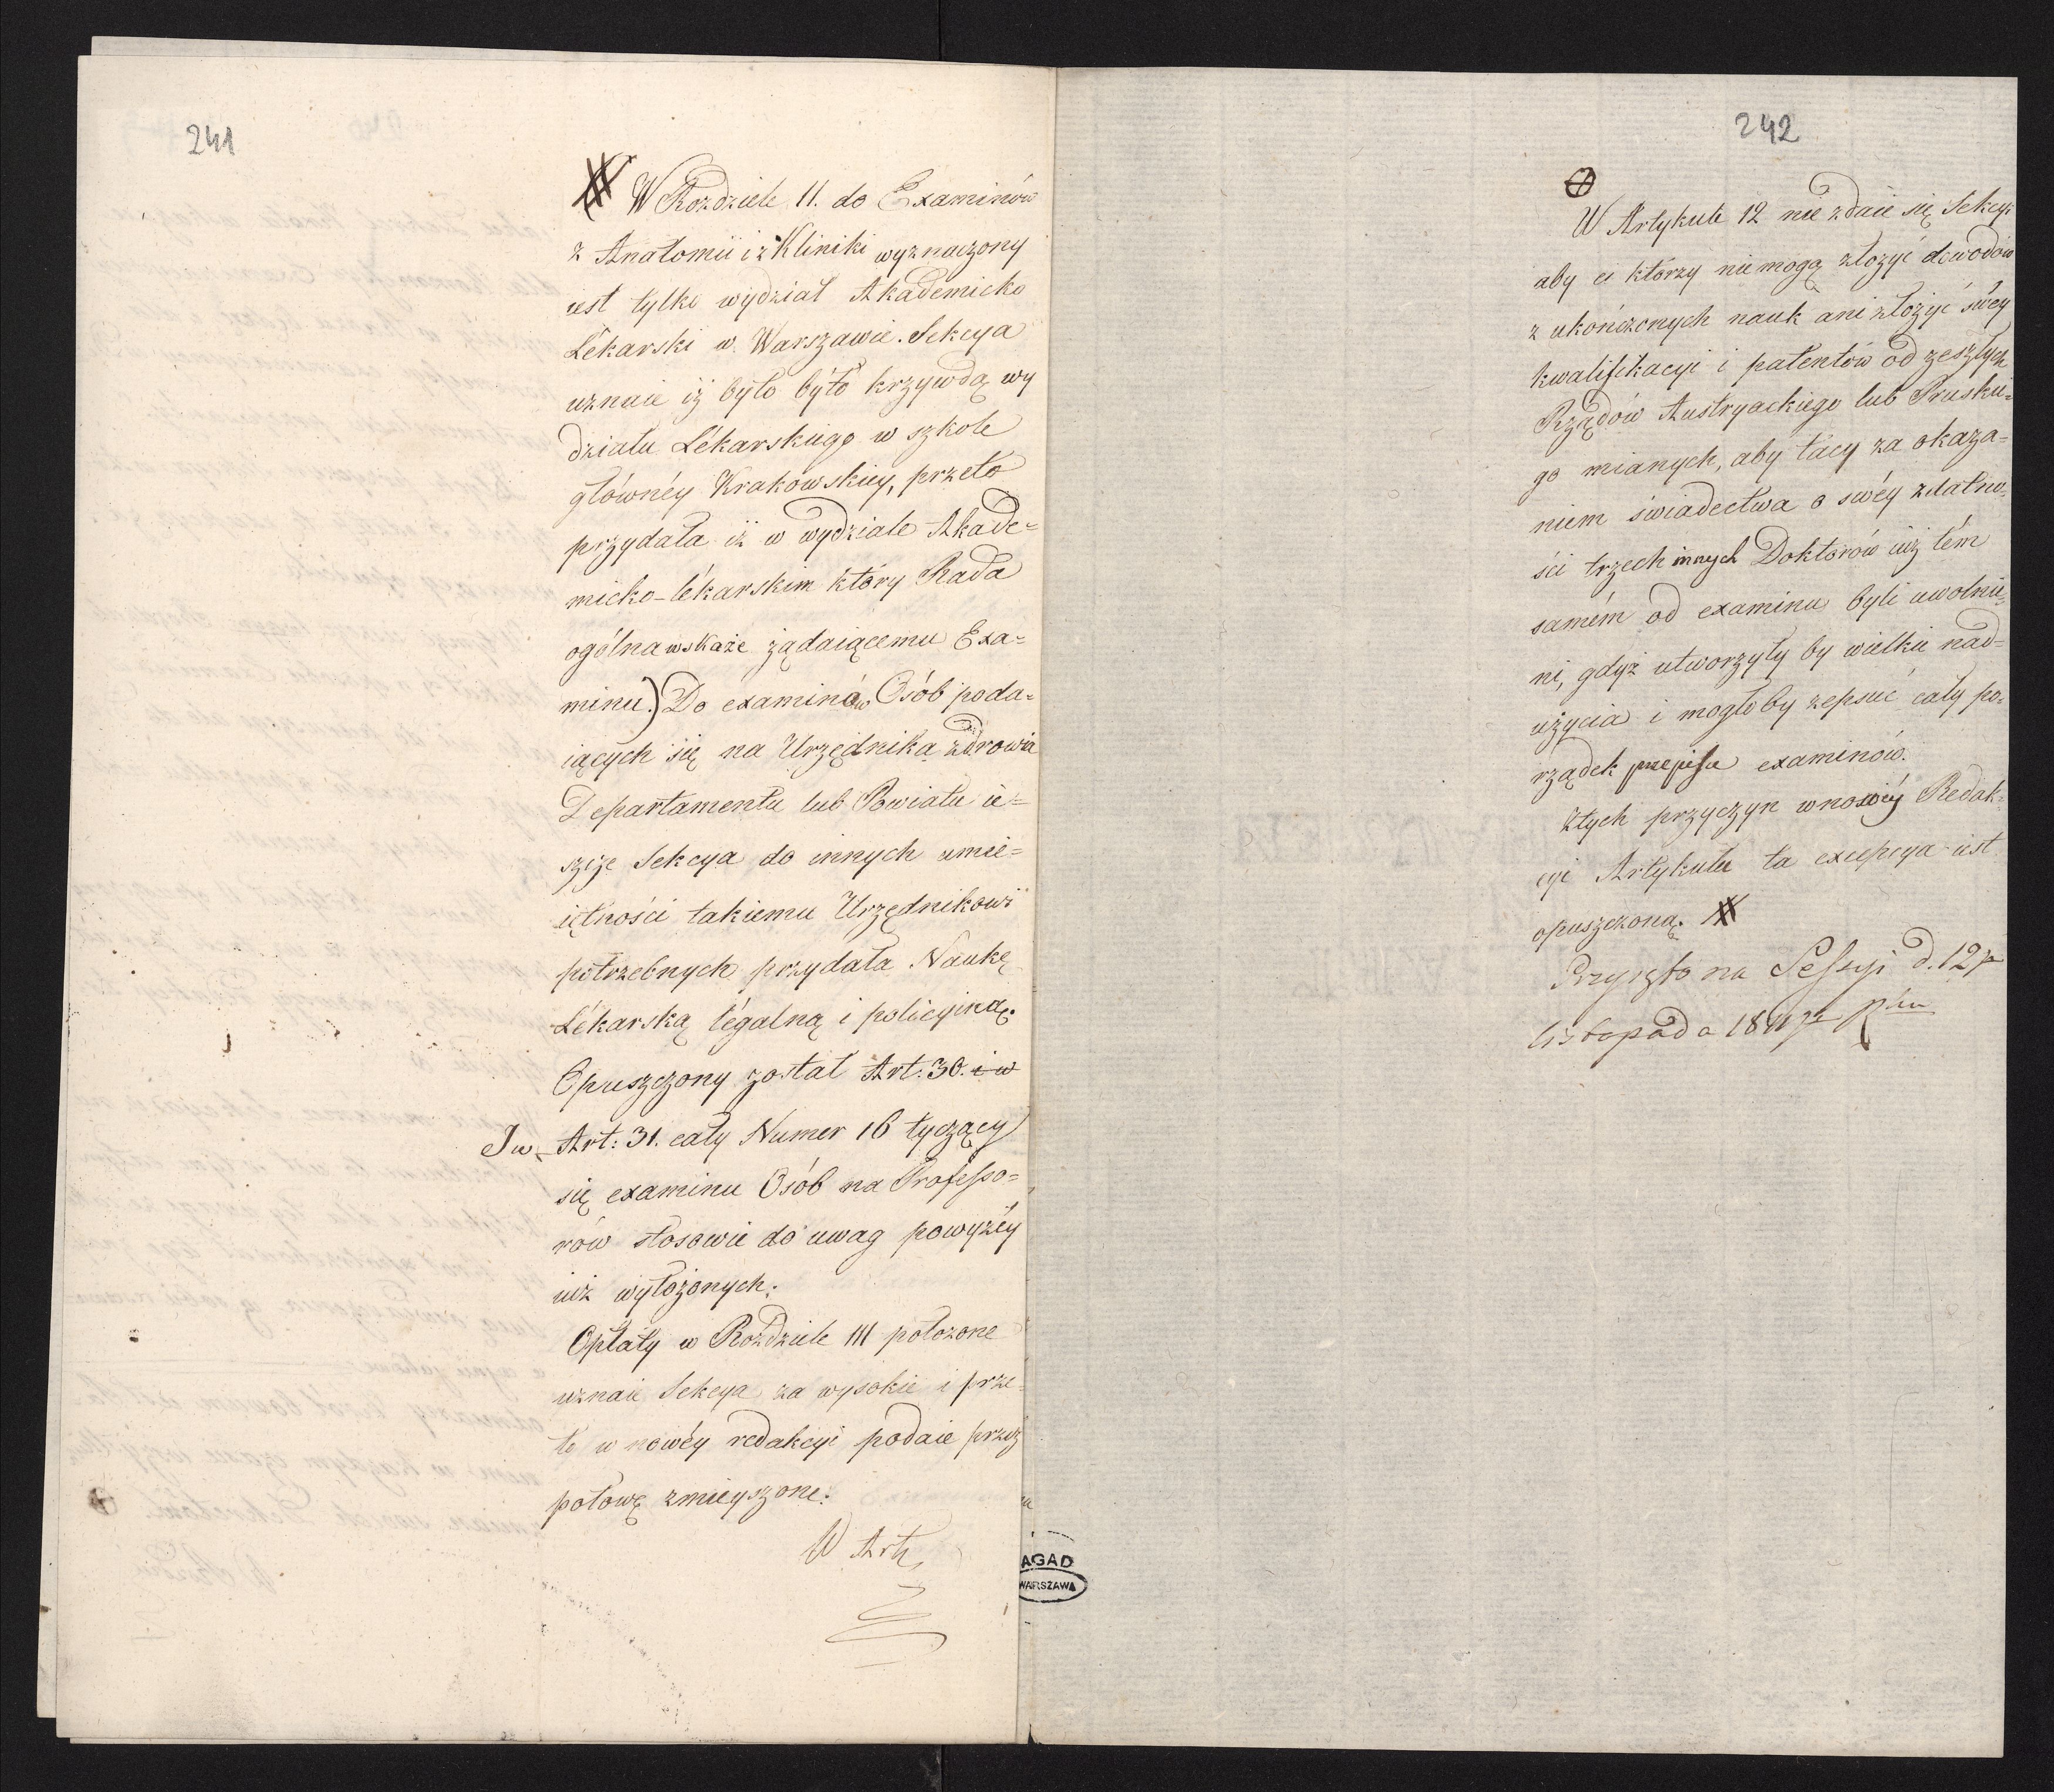 241
W Rozdziele 11. do Examinów
z Anatomii i z Kliniki wyznaczony
iest tylko wydział Akademicko
Lékarski w Warszawie. Sekcya
uznaie iż było było krzywdą wy
działu Lékarskiego w szkole
głównéy Krakowskiey, przeto
przydała iż w wydziale Akade=
micko-lékarskim który Rada
ogólna wskaże żądaiącemu Exa=
minu.) Do examinów Osób poda=
iących się na Urzędnika zdrowia
Departamentu lub Powiatu ie=
szcze Sekcya do innych umie=
iętności takiemu Urzędnikowi
potrzebnych przydała Naukę
Lékarską légalną i policyiną.
Opuszczony został Art: 30. i w
I w Art: 31. cały Numer 16 tyczący
się examinu Osób na Professo=
rów stosowie do uwag powyżéy
iuż wyłożonych.
Opłaty w Rozdziele III położone
uznaie Sekcya za wysokie i prze=
to w nowéy redakcyi podaie przez
połowę zmieyszone.
W Art.
AGAD
WARSZAWA
242
W Artykule 12 nie zdaie się Sekcyi
aby ci którzy niemogą złożyć dowodów
z ukończonych nauk ani złożyć swéy
kwalifikacyi i patentów od zeszłych
Rządów Austryackiego lub Pruskie=
go mianych, aby tacy za okaza=
niem świadectwa o swéy zdatno=
ści trzech innych Doktorów iuż tém
samém od examinu byli uwolnie=
ni, gdyż utworzyły by wielkie nad=
użycia i mogłoby zepsuć cały po=
rządek przepisu examinów.
Ztych przyczyn w nowéy Redak=
cyi Artykułu ta excepcya iest
opuszczoną.
Przyięto na Sessyi d. 12
listopada 1811